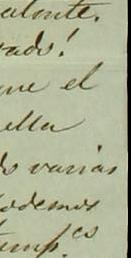 alinte.
rado!
que el
ella
os varias
podemos
temp.es